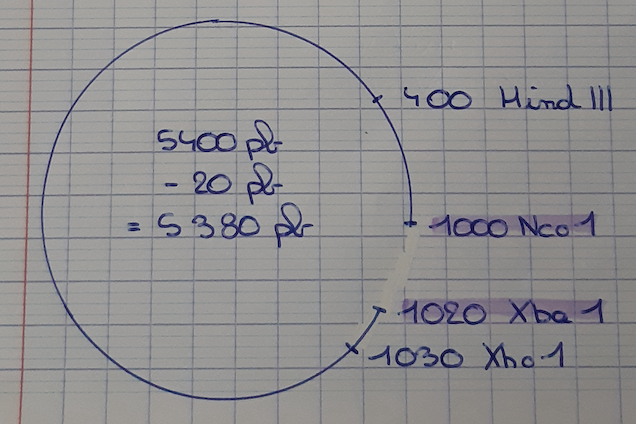 400 Hind III
5400 pb
- 20 pb
= 5380 pb
1000 Nco 1
1020 Xba 1
1030 Xho 1